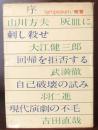 序
山川方夫 灰皿に
刺し殺せ
大江健三郎
回帰を拒否する
武満徹
自己破壊の試み
羽仁進
現代演劇の不毛
吉田直哉